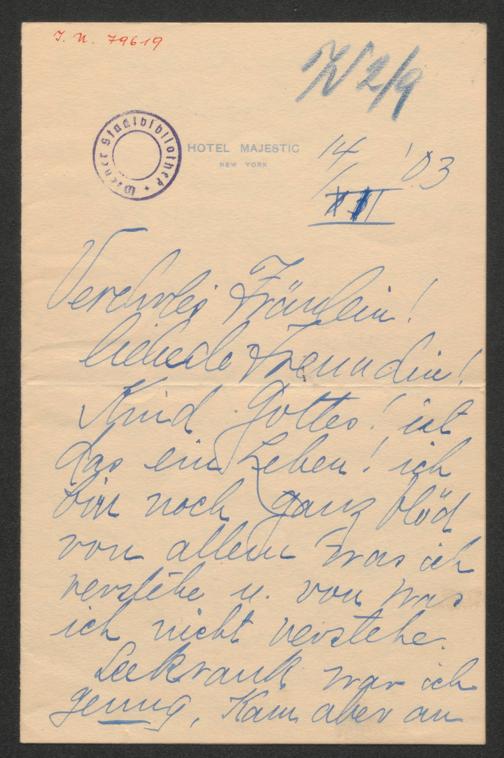 J. N. 79619
IV 2/9
Wiener Stadtbibliothek
HOTEL MAJESTIC
NEW YORK
14/XII '03
Verehrtes Fräulein!
liebste Freundin!
Kind Gottes! ist
das ein Leben! ich
bin noch ganz blöd
von allem was ich
verstehe u. von was
ich nicht verstehe.
Seekrank war ich
genug, kam aber an